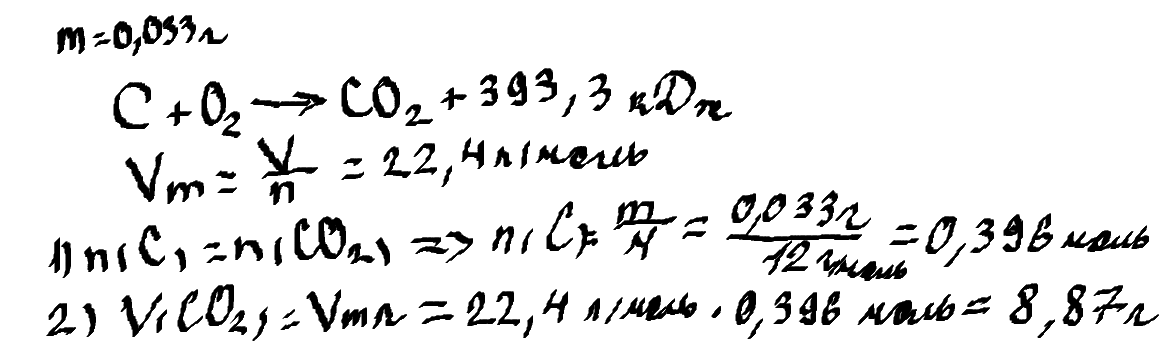 m=0,033г
C + O₂ → CO₂ + 393,3 кДж
Vm = V/n = 22,4 л/моль
1) n(C) = n(CO₂) => n(C) = m/M = 0,033г/12 г/моль = 0,396 моль
2) V(CO₂) = Vmn = 22,4 л/моль · 0,396 моль = 8,87л